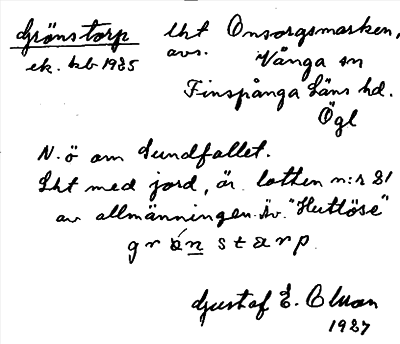 Grönstorp lht Onsorgsmarken,
ek. kb 1925 avs. Vånga sn
Finspånga Läns hd.
Ögl
N. ö om Sundfallet.
Lht med jord, är lotten n:r 81
av allmänningen. Äv. "Hutlöse"
grȯ́nstarp
Gustaf E. Olsson
1927